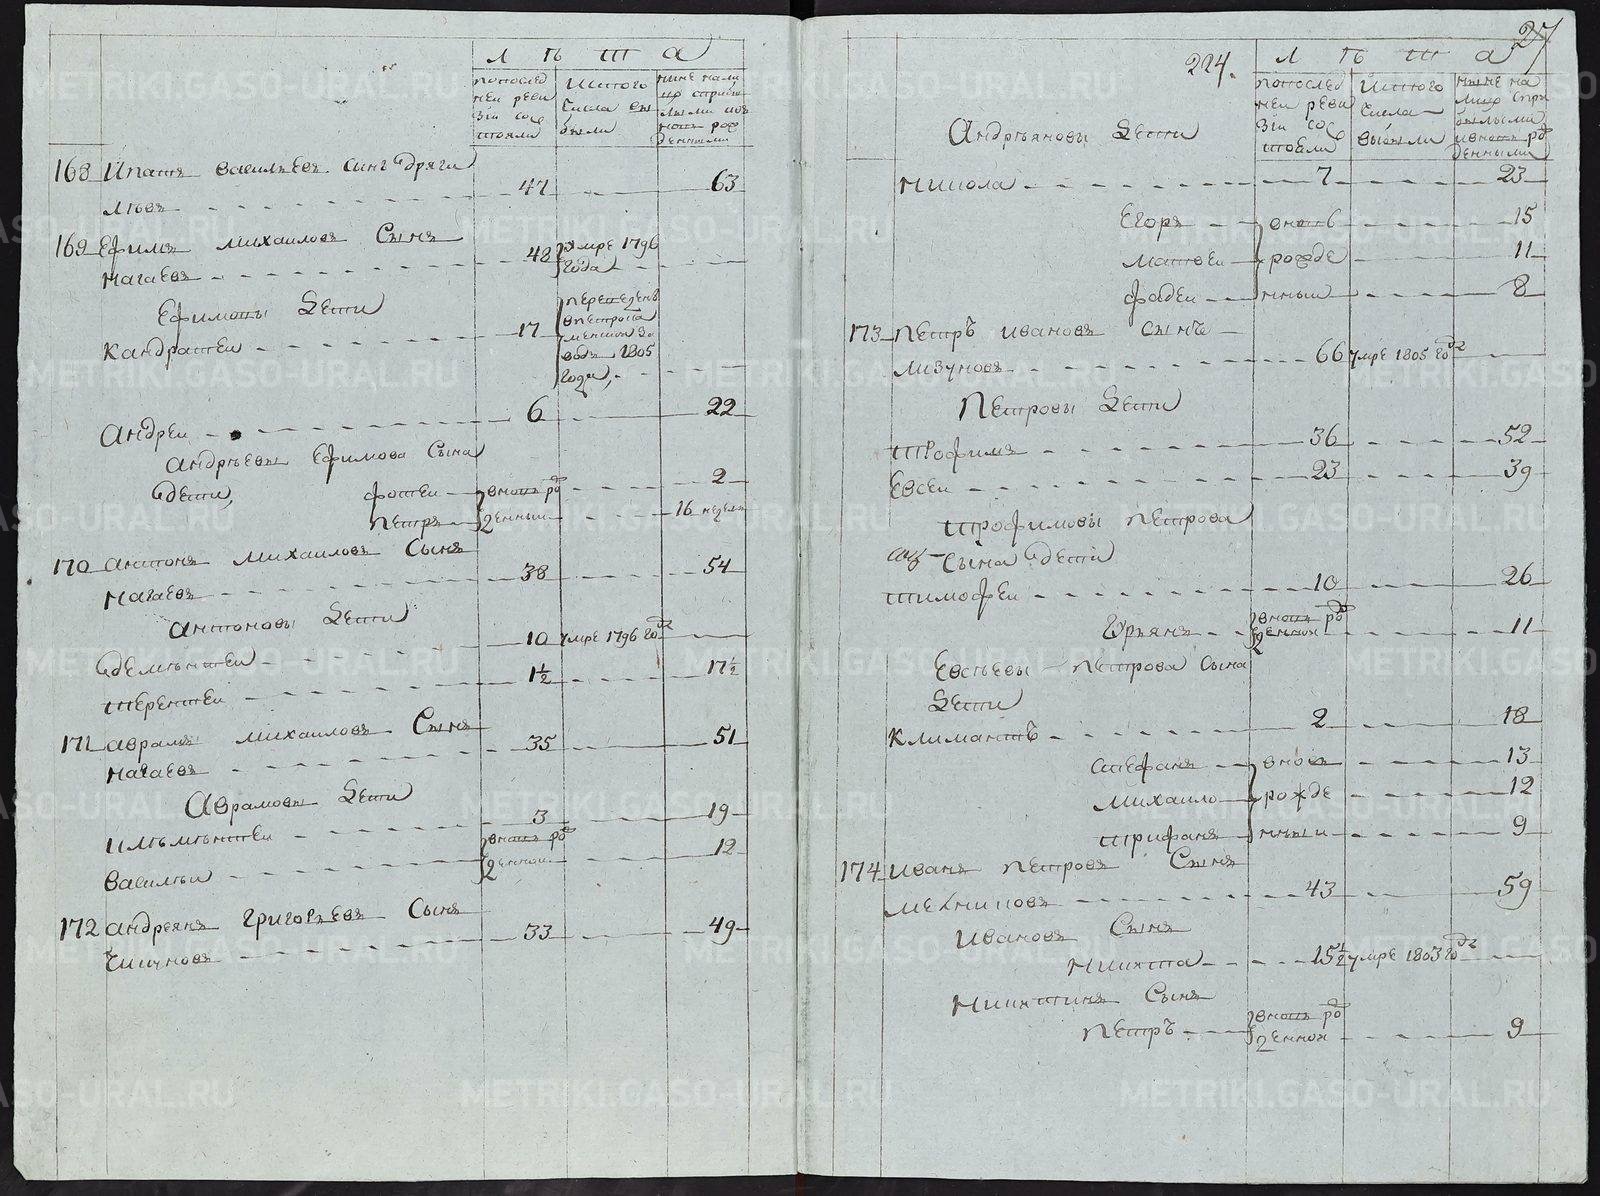 Л ѣ т а
попослед
ней реви
зіи сос
тояли
Изтого
числа вы
были
ныне нали
цо сприбы
лыми ивъ
новь рож
денными
168 Ипатъ васильевъ сынъ дряги
левъ 47 63
169 Ефимъ михаиловъ Сынъ
нагаевъ 48 умре 1796
года
Ефимовы Дети
кандратеи 17 переведенъ
в петропа
менной за
водъ 1805
года,
андреи 6 22
андрѣевы Ефимова Сына
дети, фотеи вновь ро 2
петръ жденныи 16 недель
170 антонъ михаиловъ Сынъ
нагаевъ 38 54
антоновы Дети
дементеи 10 умре 1796 год
терентеи 1½ 17½
171 аврамъ михаиловъ Сынъ
нагаевъ 35 51
Аврамовы Дети
илѣментеи 3 19
василеи вновь ро 12
жденнои
172 андреянъ григорьевъ Сынъ
33 49
27
224.
Л ѣ т а
попослед
ней реви
зіи сос
тояли
Изтого
числа
выбыли
ныне на
лицо спри
былыми
ивновь ро
жденными
Андрѣяновы Дети
никола 7 23
Егоръ вновь 15
матвеи рожде 11
фадеи нныи 8
173 петръ ивановъ сынъ
лизуновъ 66 умре 1805 год
Петровы Дети
трофимъ 36 52
Евсеи 23 39
трофимовы петрова
Сына дети
тимофеи 10 26
Гурьянъ вновь ро 11
жденнои
Евсѣевы петрова Сына
Дети
климантъ 2 18
стефанъ вновь 13
михаило рожде 12
трифанъ нныи 9
174 Иванъ петровъ Сынъ
мехниновъ 43 59
Ивановъ Сынъ
никита 15½ умре 1803 год
никитинъ Сынъ
петръ вновь ро 9
жденнои
METRIKI.GASO-URAL.RU